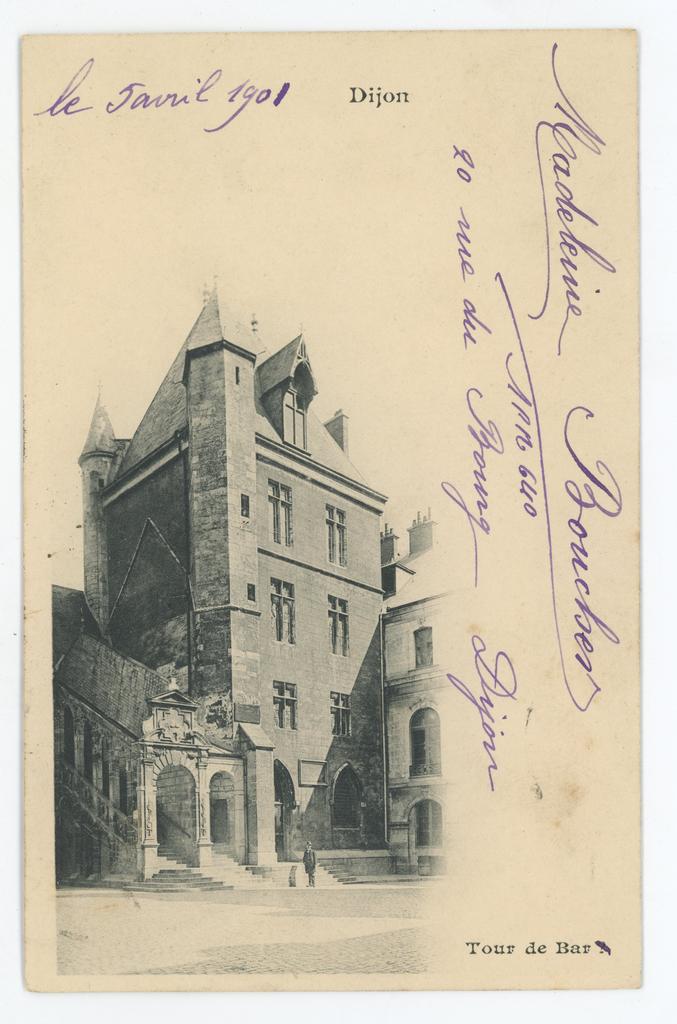 le 5 avril 1901
Dijon
Madeleine Boucher
20 rue du Bourg Dijon
Tour de Bar